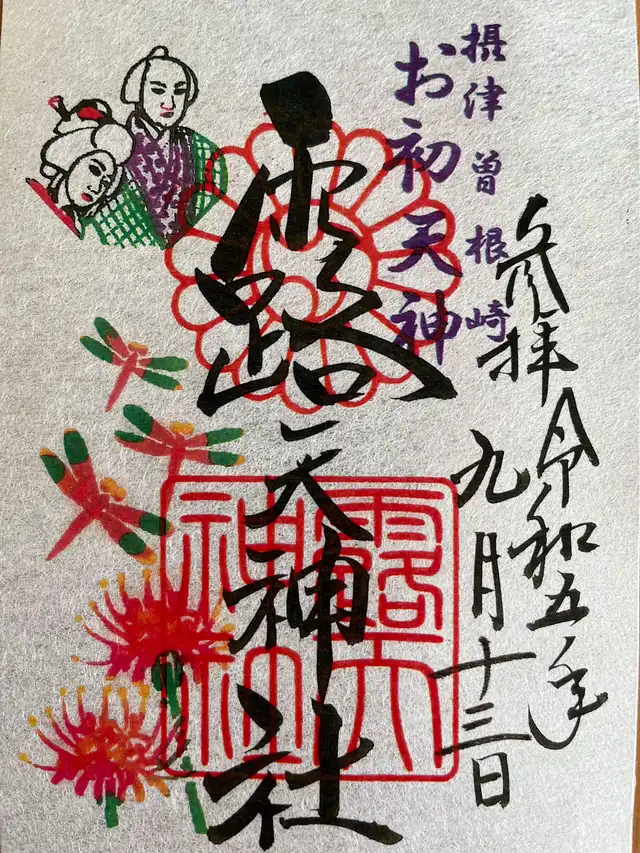 摂津曽根崎
お初天神
参拝 令和五年
九月十三日
露天神社
露天
神社